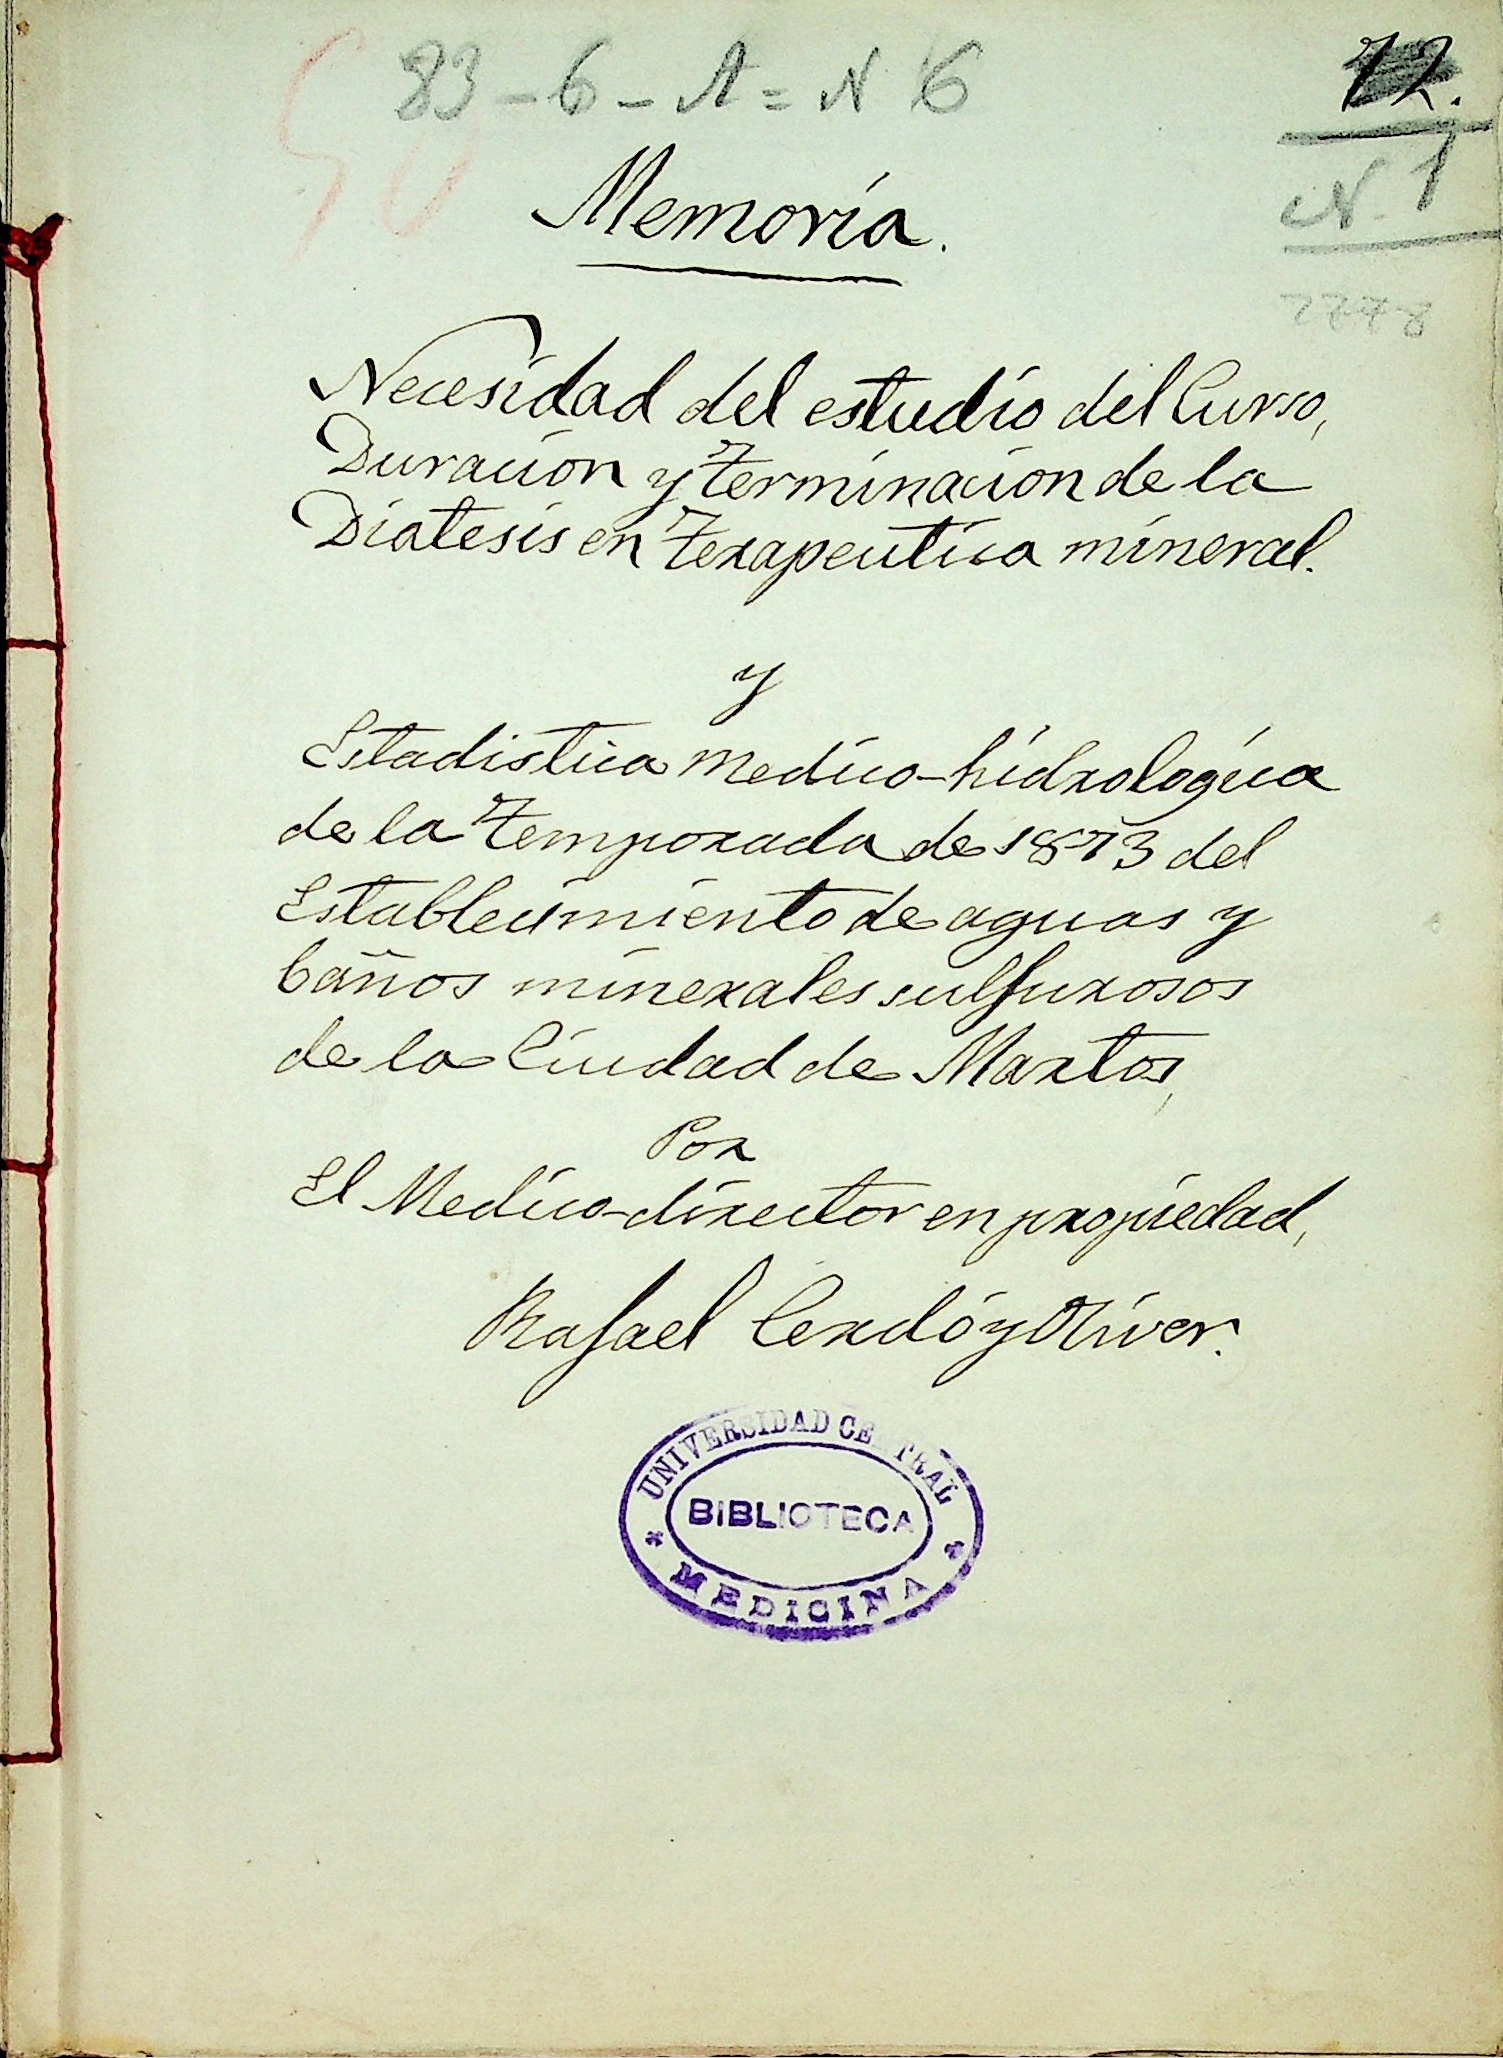 83-6-A=N 6
72.
N. 1
7778
Memoria.
Necesidad del estudio del Curso,
Duracion y terminacion de la
Diatesis en terapeutica mineral.
y
Estadistica medico-hidrologica
de la temporada de 1873 del
Establecimiento de aguas y
baños minerales sulfurosos
de la Ciudad de Martos,
Por
El Medico-director en propiedad,
Rafael Cerdó y Oliver.
UNIVERSIDAD CENTRAL
BIBLIOTECA
MEDICINA